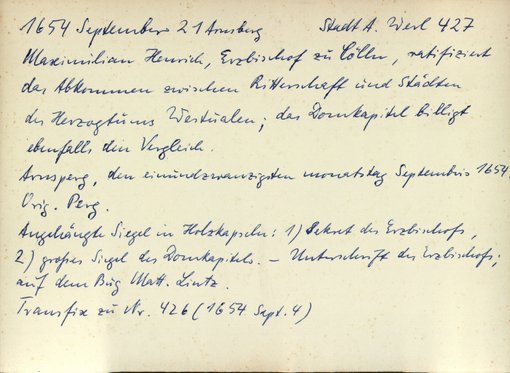 1654 September 21 Arnsberg Stadt A. Werl 427
Maximilian Henrich, Erzbischof zu Cölln, ratifiziert
das Abkommen zwischen Ritterschaft und Städten
des Herzogtums Westualen; das Domkapitel billigt
ebenfalls den Vergleich.
Arnsperg, den einundzwanzigsten monatstag Septembris 1654.
Orig. Perg.
Angehängte Siegel in Holzkapseln: 1) Sekret des Erzbischofs,
2) großes Siegel des Domkapitels. – Unterschrift des Erzbischofs;
auf dem Bug Matt. Lintz.
Transfix zu Nr. 426 (1654 Sept. 4)